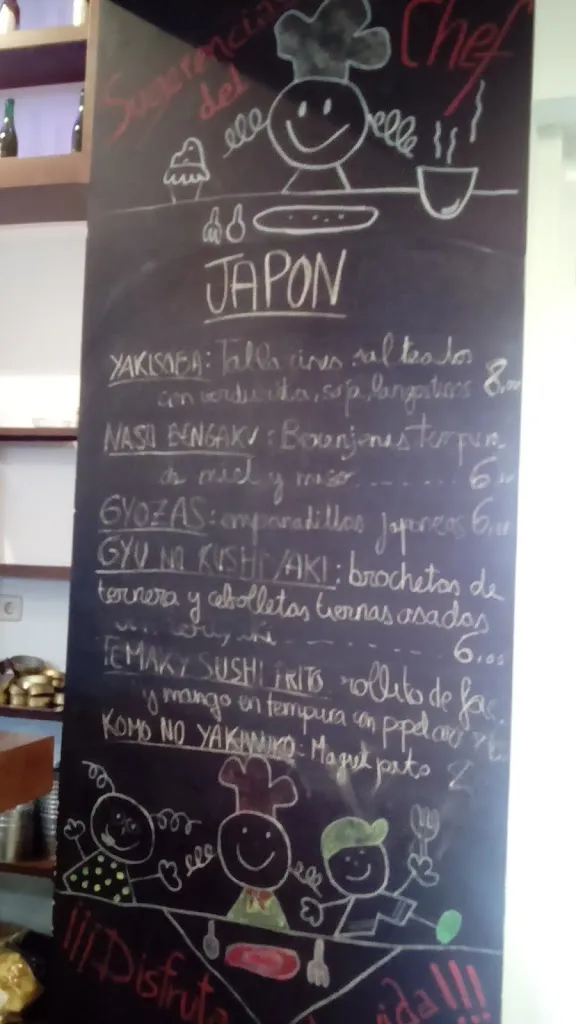 Sugerencias Chef
del
JAPON
YAKISOBA: Tallarines salteados
con verdurita, soja, langostinos 8,00
NASU DENGAKU: Berenjenas tempura
de miel y miso ........ 6
GYOZAS: empanadillas japonesas 6,00
GYU NO KUSHIYAKI: brochetas de
ternera y cebolletas tiernas asadas
6,00
TEMAKY SUSHI FRITO rollito de
y mango en tempura con
KOMO NO YAKINIKO: Magret pato
¡¡¡Disfruta vida!!!